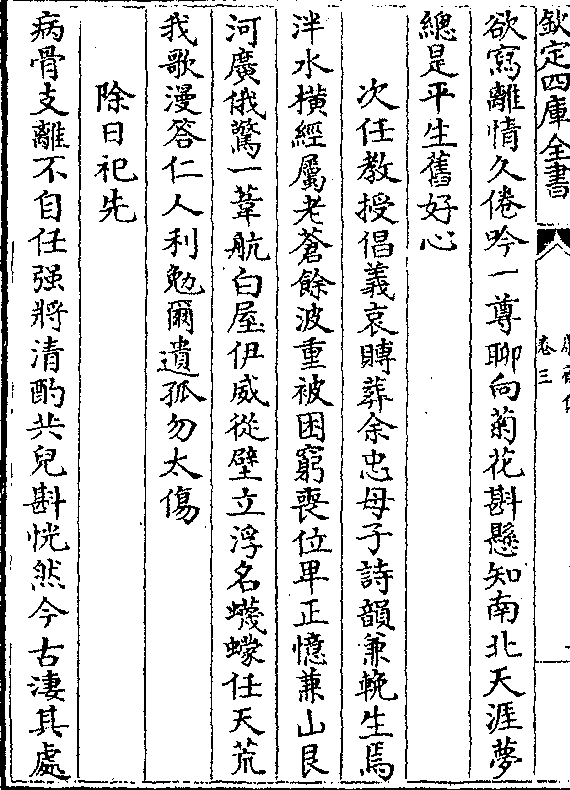 欽定四庫全書
卷三
欲寫離情久倦吟一尊聊向菊花斟懸知南北天涯夢
總是平生舊好心
次任教授倡義哀賻葬余忠母子詩韻兼輓生焉
泮水橫經屬老蒼餘波重被困窮喪位卑正憶兼山艮
河廣俄驚一葦航白屋伊威從壁立浮名蠛蠓任天荒
我歌漫答仁人利勉爾遺孤勿太傷
除日祀先
病骨支離不自任强將清酌共兒斟恍然今古淒其處